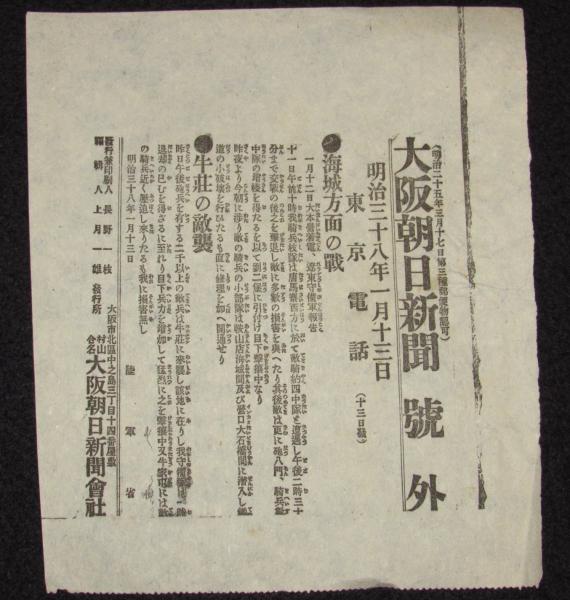 (明治二十五年三月十七日第三種郵便物認可)
大阪朝日新聞 號外
明治三十八年一月十三日
東京電話 (十三日發)
●海城方面の戰
一月十二日大本營着電、遼東守備軍報告
十一日午前十時我騎兵枝隊は唐馬寨西方に於て敵騎約四中隊と遭遇し午後二時三十
分まで交戰の後之を擊退し敵に多數の損害を與へたり其後敵は更に砲八門、騎兵
中隊の增援を得たるを以て劉二堡に引付け目下擊攘中なり
昨夜より今朝に渉り敵の騎兵の小部隊は鞍山店海城間及び營口大石橋間に潜入し鐵
道の小破壞を行ひたるも直に修理を加へ開通せり
●牛莊の敵襲
昨日午後砲兵を有する二千以上の敵兵は牛莊に來襲し該地に在りし我守備隊は一時
退却の已むを得ざるに至れり目下兵力を增加して猛烈に之を擊攘中又牛家屯には敵
の騎兵近く壓迫し來りたるも我に損害無し
明治三十八年一月十三日 陸軍省
發行兼印刷人 長野一枝
編輯人 上月一雄
發行所
大阪市北區中之島三丁目十四番屋敷
合名 村山 大阪朝日新聞會社